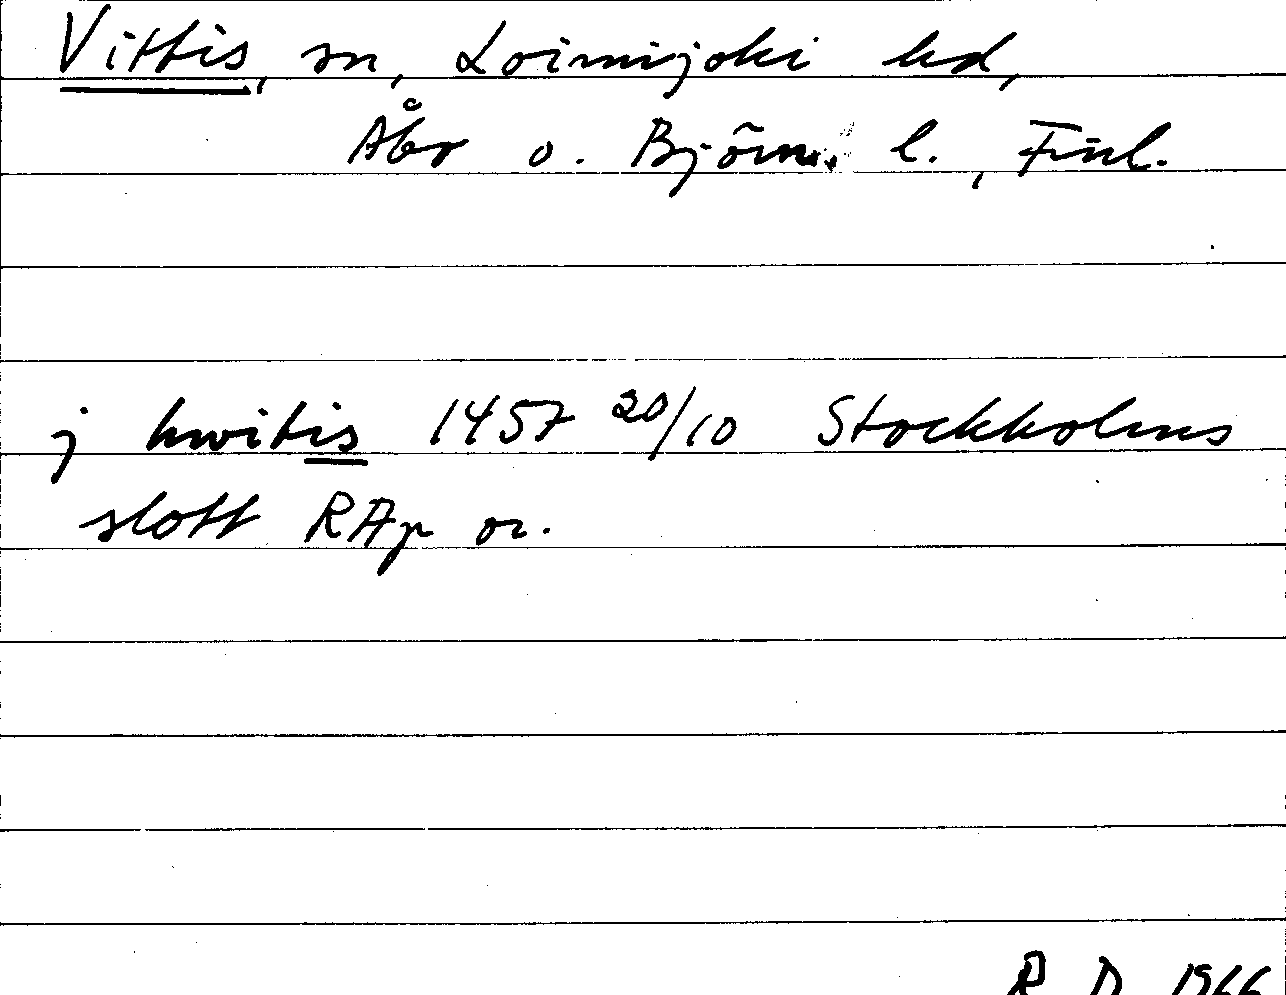 Vittis, sn, Loimijoki hd,
Åbo o. Björn. l., Finl.
j hwitis 1457 20/10 Stockholms
slott RAp or.
R D 1966